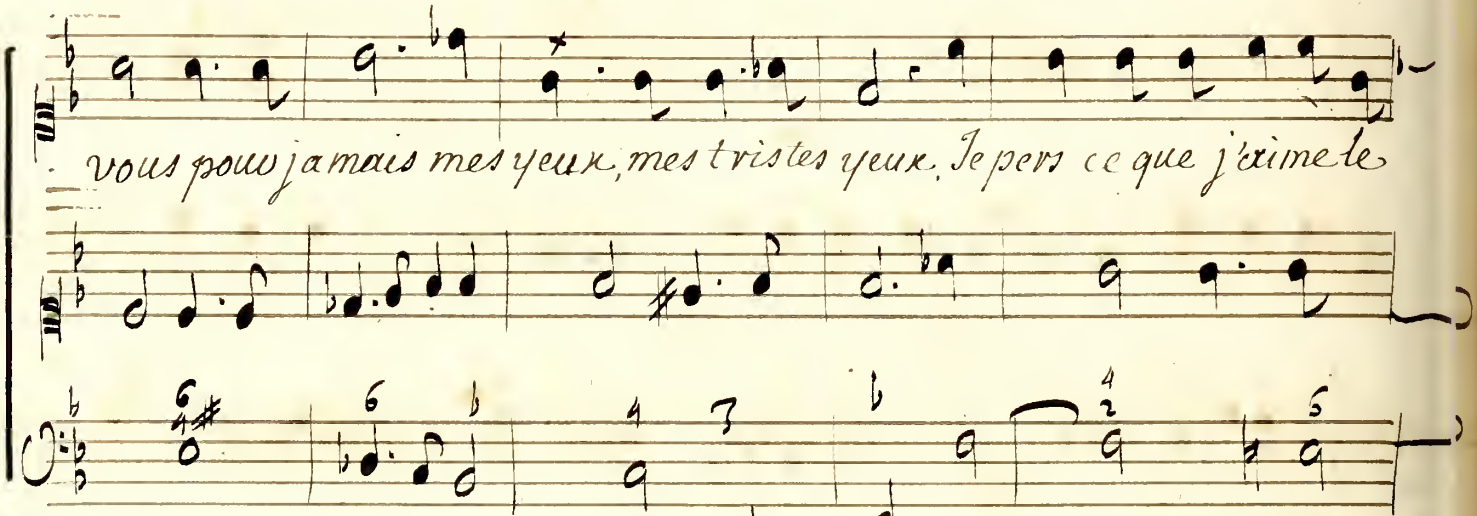 vous pour jamais mes yeux, mes tristes yeux. Je pers ce que j'aime le
6 6 4 7 4
4 2 5